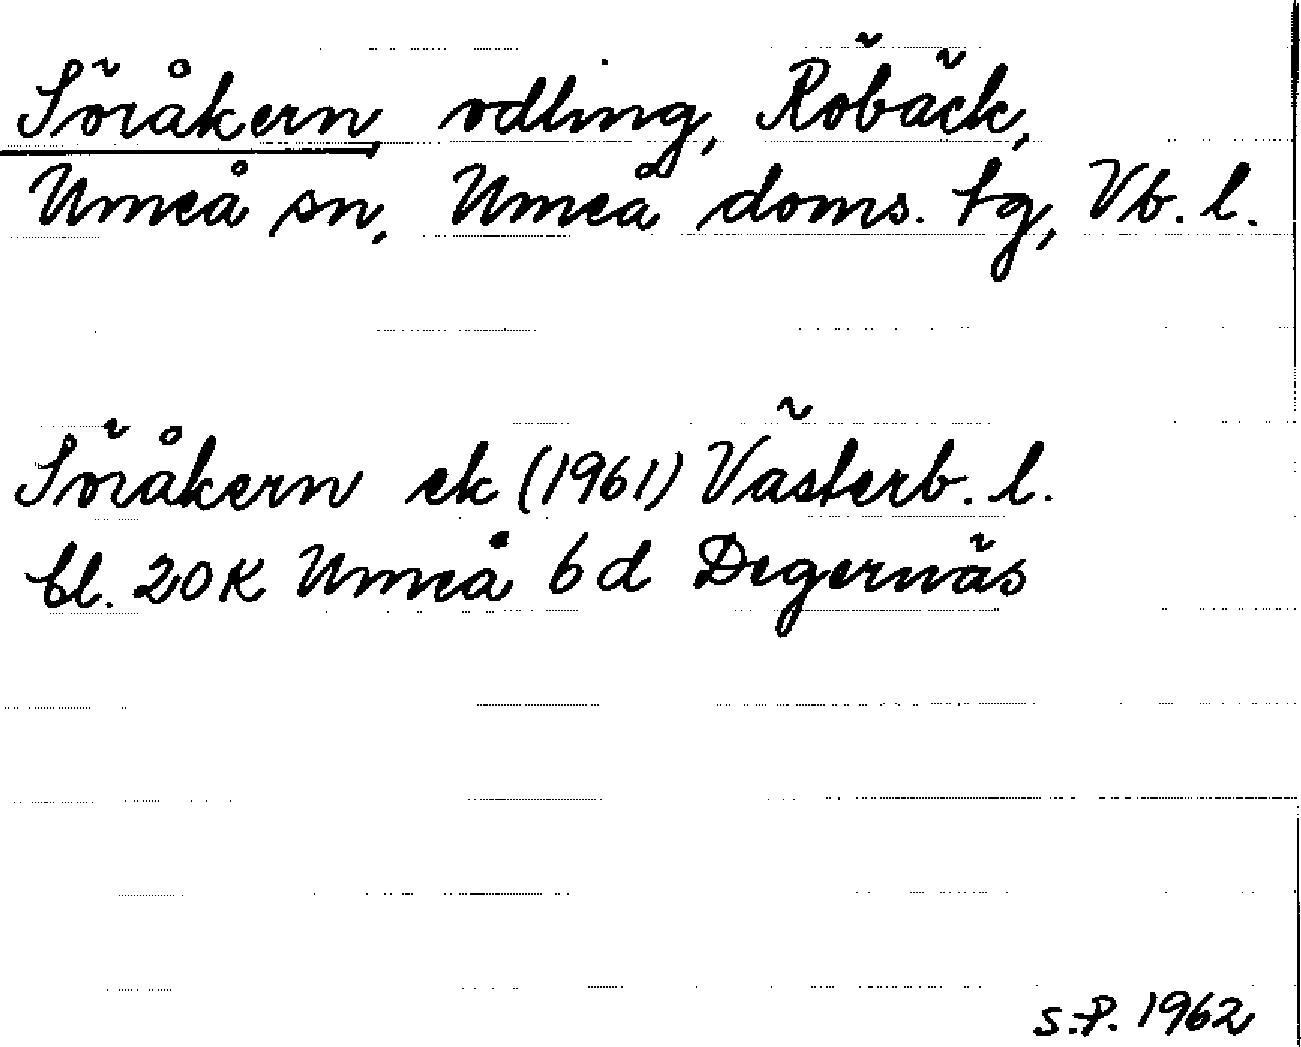 Söråkern, odling, Röbäck,
Umeå sn, Umeå doms. tg, Vb. l.
Söråkern ek (1961) Västerb. l.
bl. 20K Umeå 6d Degernäs
S.P. 1962